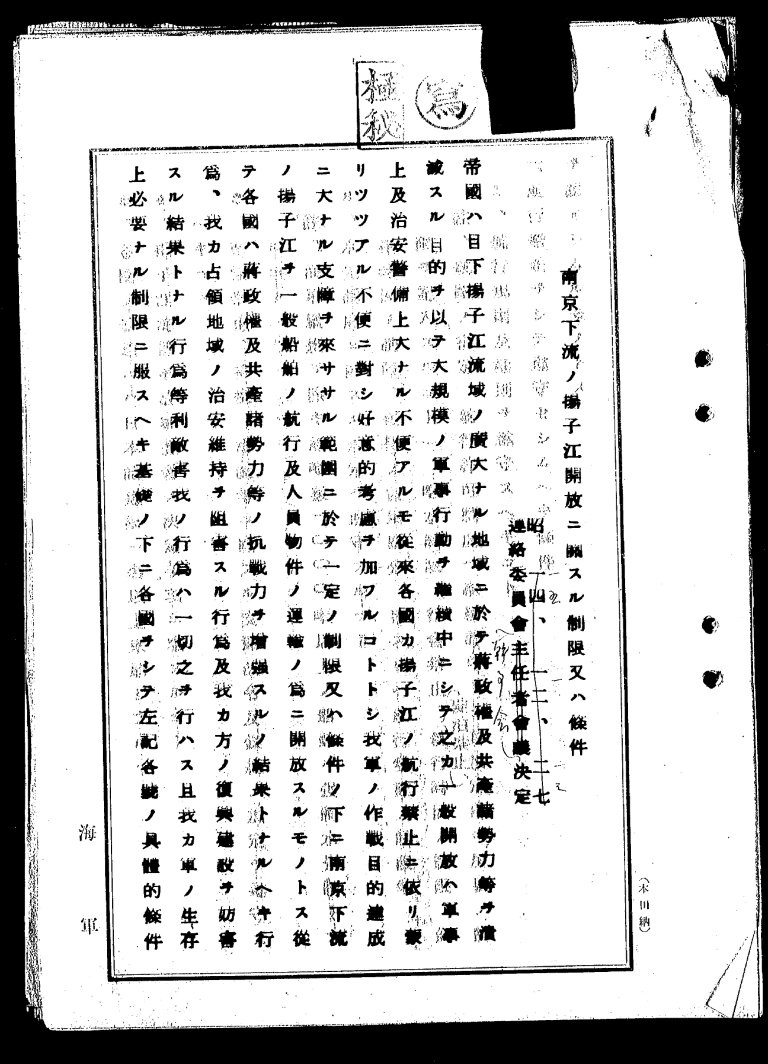 極秘
寫
南京下流ノ揚子江開放ニ關スル制限又ハ條件
昭一四、一二、二七
連絡委員會主任者會議決定
帝國ハ目下揚子江流域ノ廣大ナル地域ニ於テ蔣政權及共產諸勢力等ヲ潰
滅スル目的ヲ以テ大規模ノ軍事行動ヲ繼續中ニシテ之カ一般開放ハ軍事
上及治安警備上大ナル不便アルモ從來各國カ揚子江ノ航行禁止ニ依リ蒙
リツツアル不便ニ對シ好意的考慮ヲ加フルコトトシ我軍ノ作戰目的達成
ニ大ナル支障ヲ來ササル範圍ニ於テ一定ノ制限又ハ條件ノ下ニ南京下流
ノ揚子江ヲ一般船舶ノ航行及人員物件ノ運輸ノ爲ニ開放スルモノトス從
テ各國ハ蔣政權及共產諸勢力等ノ抗戰力ヲ增强スルノ結果トナルヘキ行
爲、我カ占領地域ノ治安維持ヲ阻害スル行爲及我カ方ノ復興建設ヲ妨害
スル結果トナル行爲等利敵害我ノ行爲ハ一切之ヲ行ハス且我カ軍ノ生存
上必要ナル制限ニ服スヘキ基礎ノ下ニ各國ヲシテ左記各號ノ具體的條件
海軍